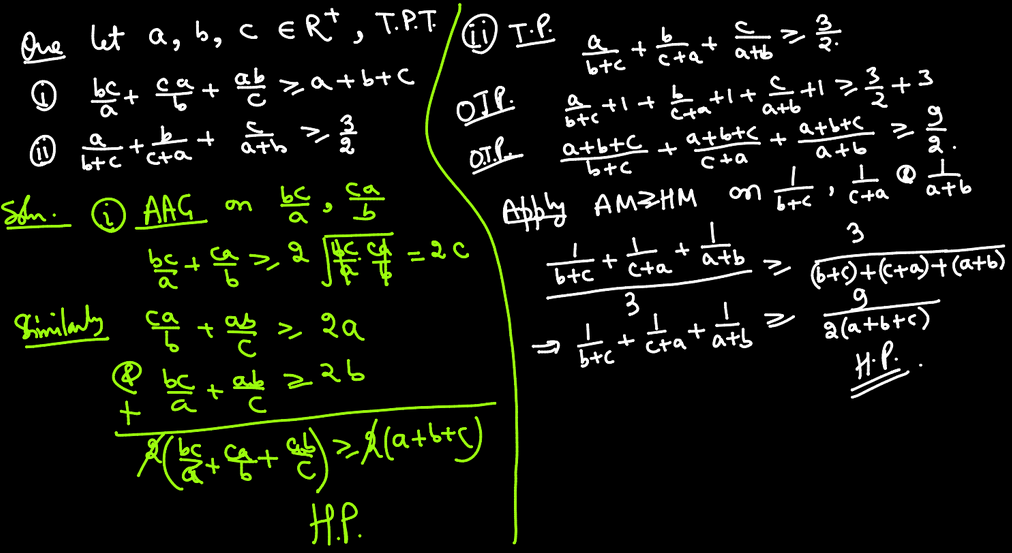 Que Let a, b, c ∈ R⁺, T.P.T.
(i) bc/a + ca/b + ab/c ≥ a+b+c
(ii) a/(b+c) + b/(c+a) + c/(a+b) ≥ 3/2
Soln. (i) AAG on bc/a, ca/b
bc/a + ca/b ≥ 2 √(bc/a · ca/b) = 2c
Similarly ca/b + ab/c ≥ 2a
& bc/a + ab/c ≥ 2b
+
2(bc/a + ca/b + ab/c) ≥ 2(a+b+c)
H.P.
(ii) T.P. a/(b+c) + b/(c+a) + c/(a+b) ≥ 3/2.
OTP. a/(b+c) + 1 + b/(c+a) + 1 + c/(a+b) + 1 ≥ 3/2 + 3
O.T.P. (a+b+c)/(b+c) + (a+b+c)/(c+a) + (a+b+c)/(a+b) ≥ 9/2.
Apply AM≥HM on 1/(b+c), 1/(c+a) & 1/(a+b)
(1/(b+c) + 1/(c+a) + 1/(a+b))/3 ≥ 3/((b+c)+(c+a)+(a+b))
⇒ 1/(b+c) + 1/(c+a) + 1/(a+b) ≥ 9/(2(a+b+c))
H.P.